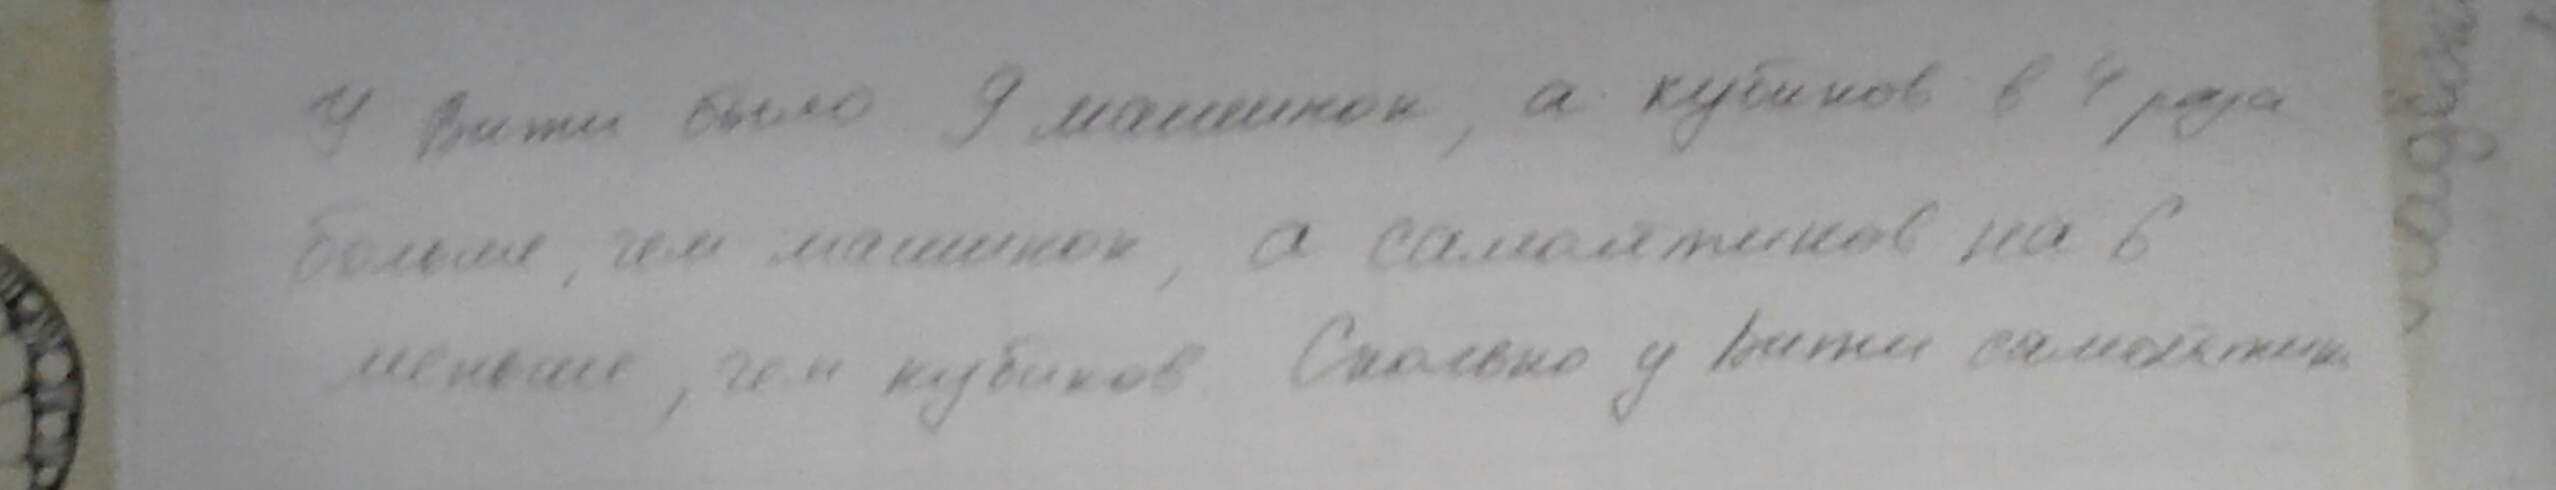 У Вити было 9 машинок, а кубиков в 4 раза
больше, чем машинок, а самолётиков на 6
меньше, чем кубиков. Сколько у Вити самолётик